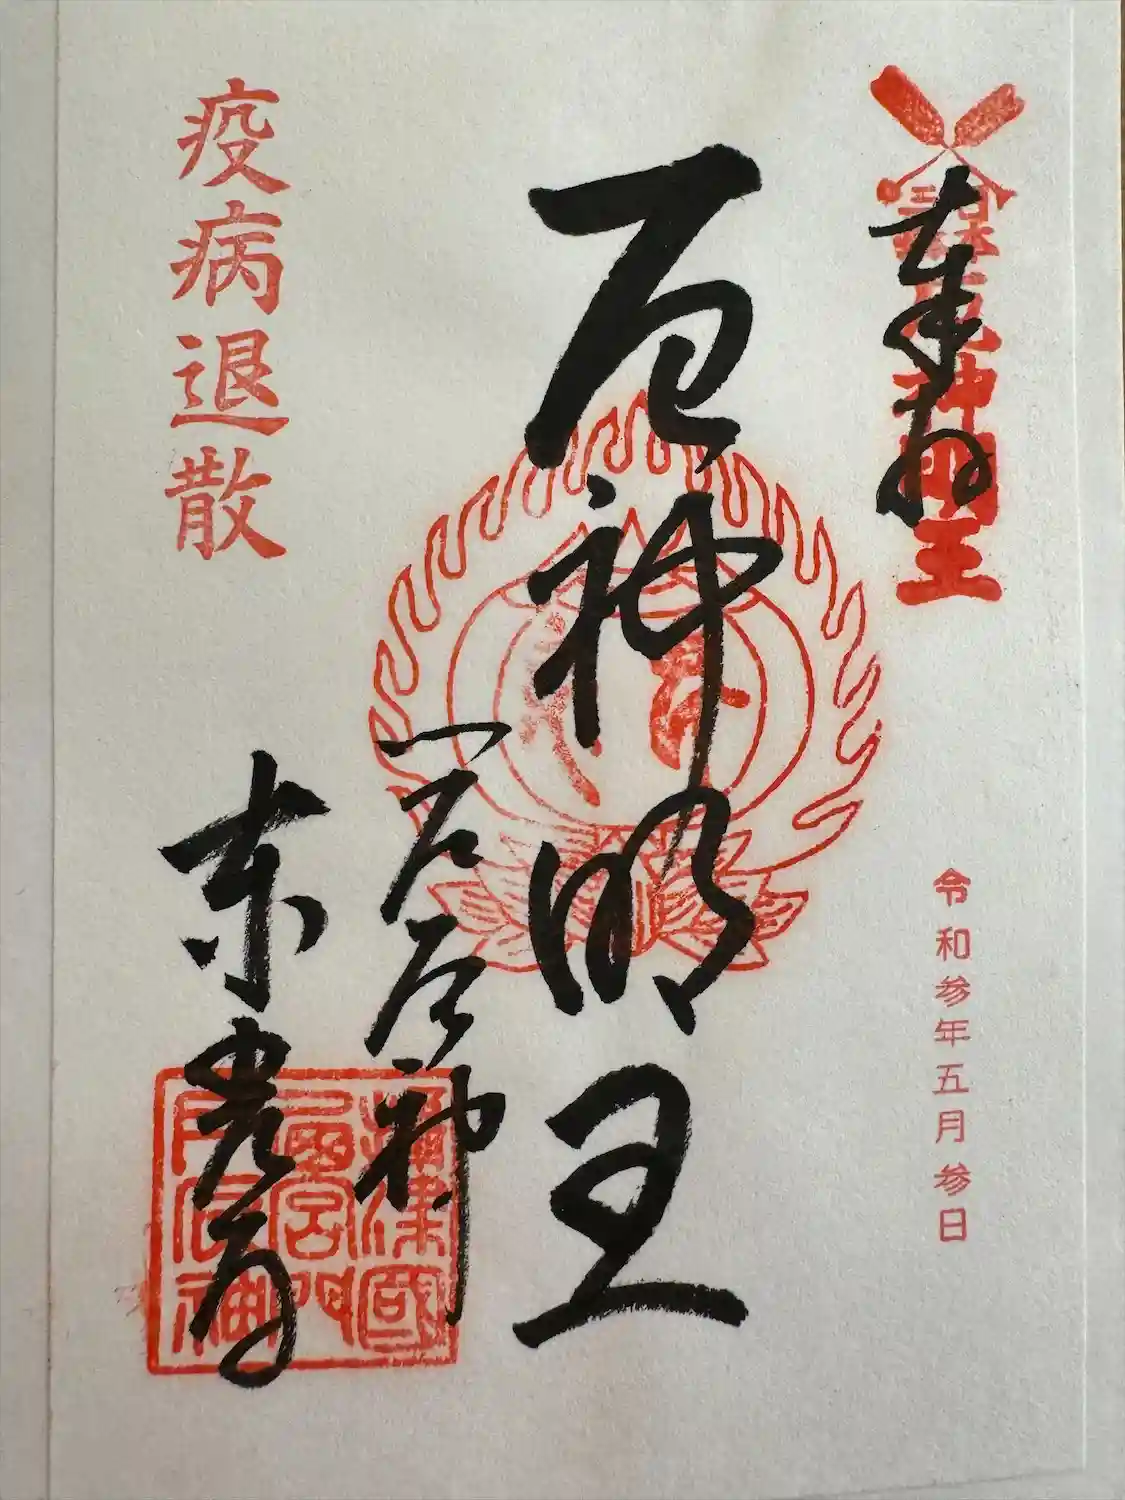 奉拝
厄神明王
令和参年五月参日
疫病退散
門戸厄神
東光寺